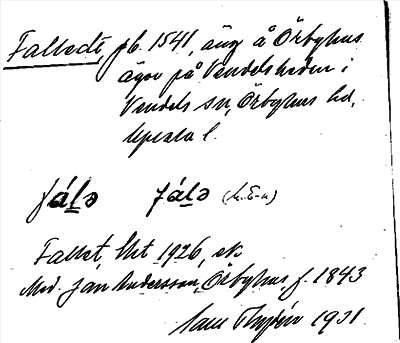 Falledt, jb. 1541, äng å Örbyhus
ägor på Vendelsheden i
Vendels sn, Örbyhus hd,
Upsala l.
fálə fálə
Fallet, Ekt 1926, ek
Med. Jan Andersson, Örbyhus, f. 1843
1931